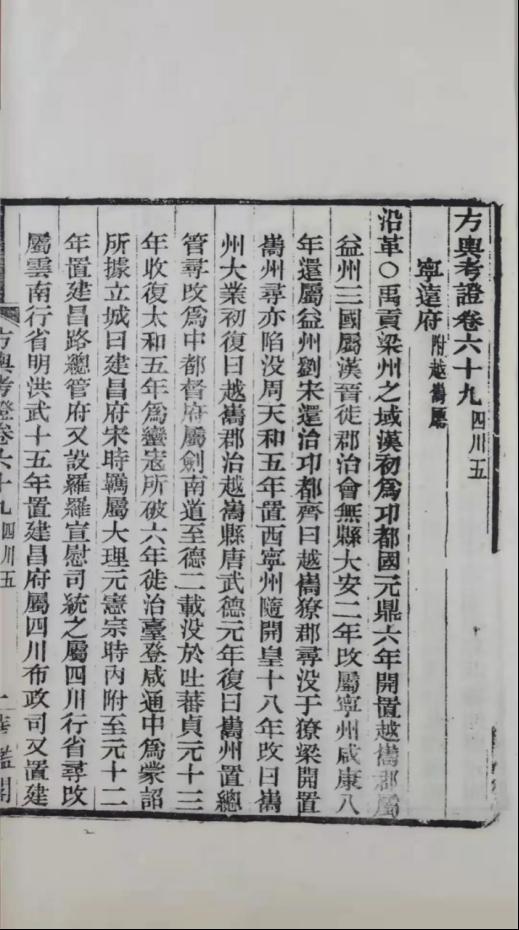 方輿考證卷六十九 四川五
寧遠府 附越嶲廳
沿革○禹貢梁州之域漢初爲邛都國元鼎六年開置越嶲郡屬
益州三國屬漢晉徙郡治會無縣大安二年改屬寧州咸康八
年還屬益州劉宋還治邛都齊曰越嶲獠郡尋没于獠梁開置
嶲州尋亦陷没周天和五年置西寧州隨開皇十八年改曰嶲
州大業初復曰越嶲郡治越嶲縣唐武德元年復曰嶲州置總
管尋改爲中都督府屬劍南道至德二載没於吐蕃貞元十三
年收復太和五年爲蠻寇所破六年徙治臺登咸通中爲蒙詔
所據立城曰建昌府宋時羈屬大理元憲宗時内附至元十二
年置建昌路總管府又設羅羅宣慰司統之屬四川行省尋改
屬雲南行省明洪武十五年置建昌府屬四川布政司又置建
方輿考證卷六十九 四川五 一 華鑑閣